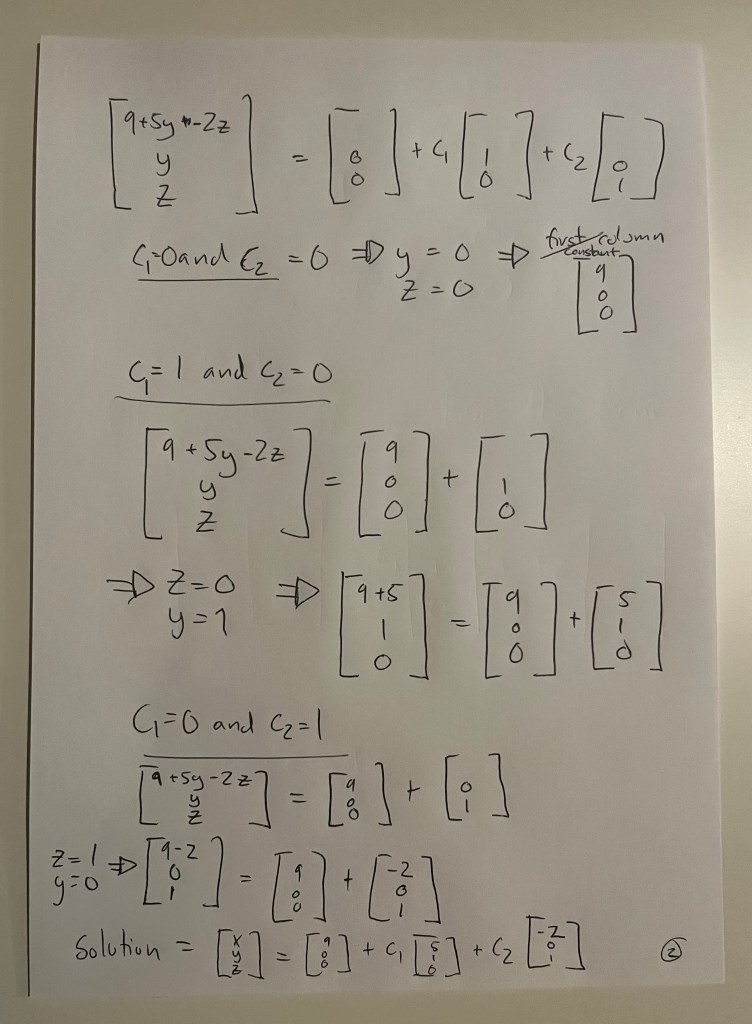 [9+5y -2z y z] = [0 0] + C₁ [1 0] + C₂ [0 1]
C₁=0 and C₂ = 0 ⇒ y = 0 z = 0 ⇒ first column constant [9 0 0]
C₁= 1 and C₂= 0
[9 + 5y -2z y z] = [9 0 0] + [1 0]
⇒ z=0 y=1 ⇒ [9+5 1 0] = [9 0 0] + [5 1 0]
C₁=0 and C₂=1
[9+5y-2z y z] = [9 0 0] + [0 1]
z=1 y=0 ⇒ [9-2 0 1] = [9 0 0] + [-2 0 1]
Solution = [x y z] = [9 0 0] + C₁ [5 1 0] + C₂ [-2 0 1]
②